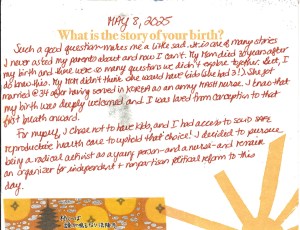 MAY 8, 2025
What is the story of your birth?
Such a good question - makes me a little sad. It is one of many stories
I never asked my parents about and now I can't. My Mom died 30 years after
my birth and there were so many questions we didn't explore together. But, I
do know this. My Mom didn't think she would have kids (she had 3!). She got
married @ 34 after having served in KOREA as an army MASH nurse. I know that
my birth was deeply welcomed and I was loved from conception to that
first breath onward.
For myself, I chose not to have kids, and I had access to SOLID SAFE
reproductive health care to uphold that choice! I decided to pursue
being a radical activist as a young person - and a nurse - and remain
an organizer for independent & nonpartisan political reform to this
day.